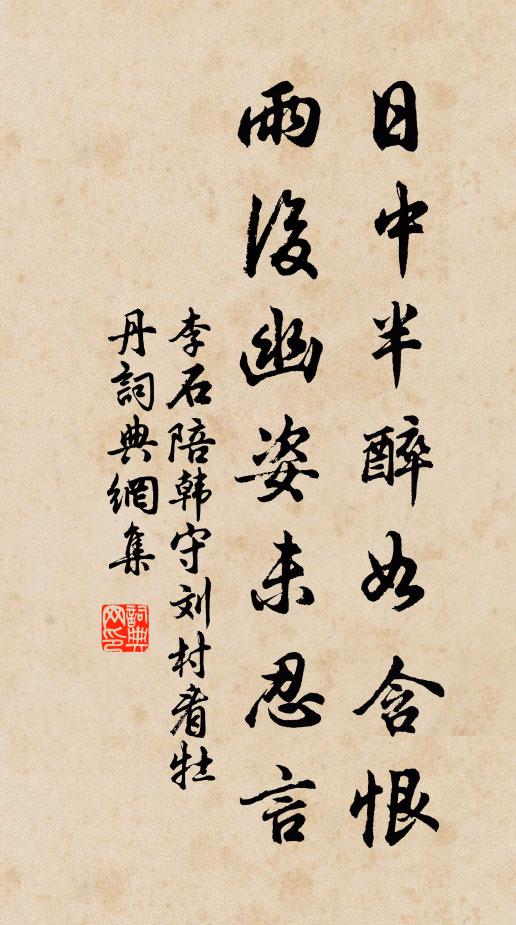 日中半醉如含恨
雨後幽姿未忍言
李石陪韩守刘村看牡
丹詞典網集
詞典網印